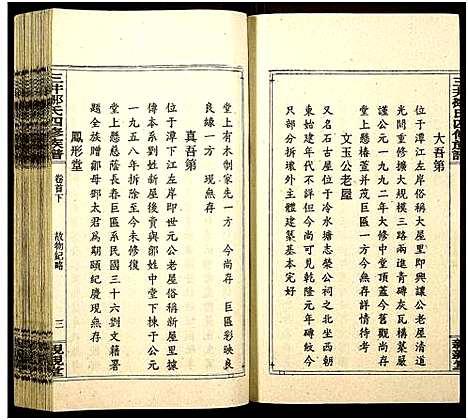 大吾第
位于潭江左岸俗稱大屋里即興讓公老屋清道
光間重修擴大規模三路兩進青磚灰瓦構築嚴
謹公元一九九二年大部份拆除今尚存正屋中
堂上懸椿萱并茂巨區詳情待考
文玉公老屋
具體位于冷水塘志榮公祠之北坐西朝
東始建年代不詳但今尚可見乾隆元年磚紋今
只部分拆壞外主體建築基本完好
堂上有木制家先一方 今尚存 巨區彩映良
良緣一方 現無存
真吾第
位于潭下江左岸即世元公老屋俗稱新屋里據
傳本系劉姓新屋後賣與鄒姓中堂下棟于公元
一九五八年拆除至今未修復
堂上懸慈蔭長春巨區系民國三十六劉文藉署
題全族贈鄒母鄧太君為期頤紀慶現無存
鳳形堂
三井鄒氏四修族譜
卷首下
故物紀略
三
親親堂
三井鄒氏四修族譜
親親堂